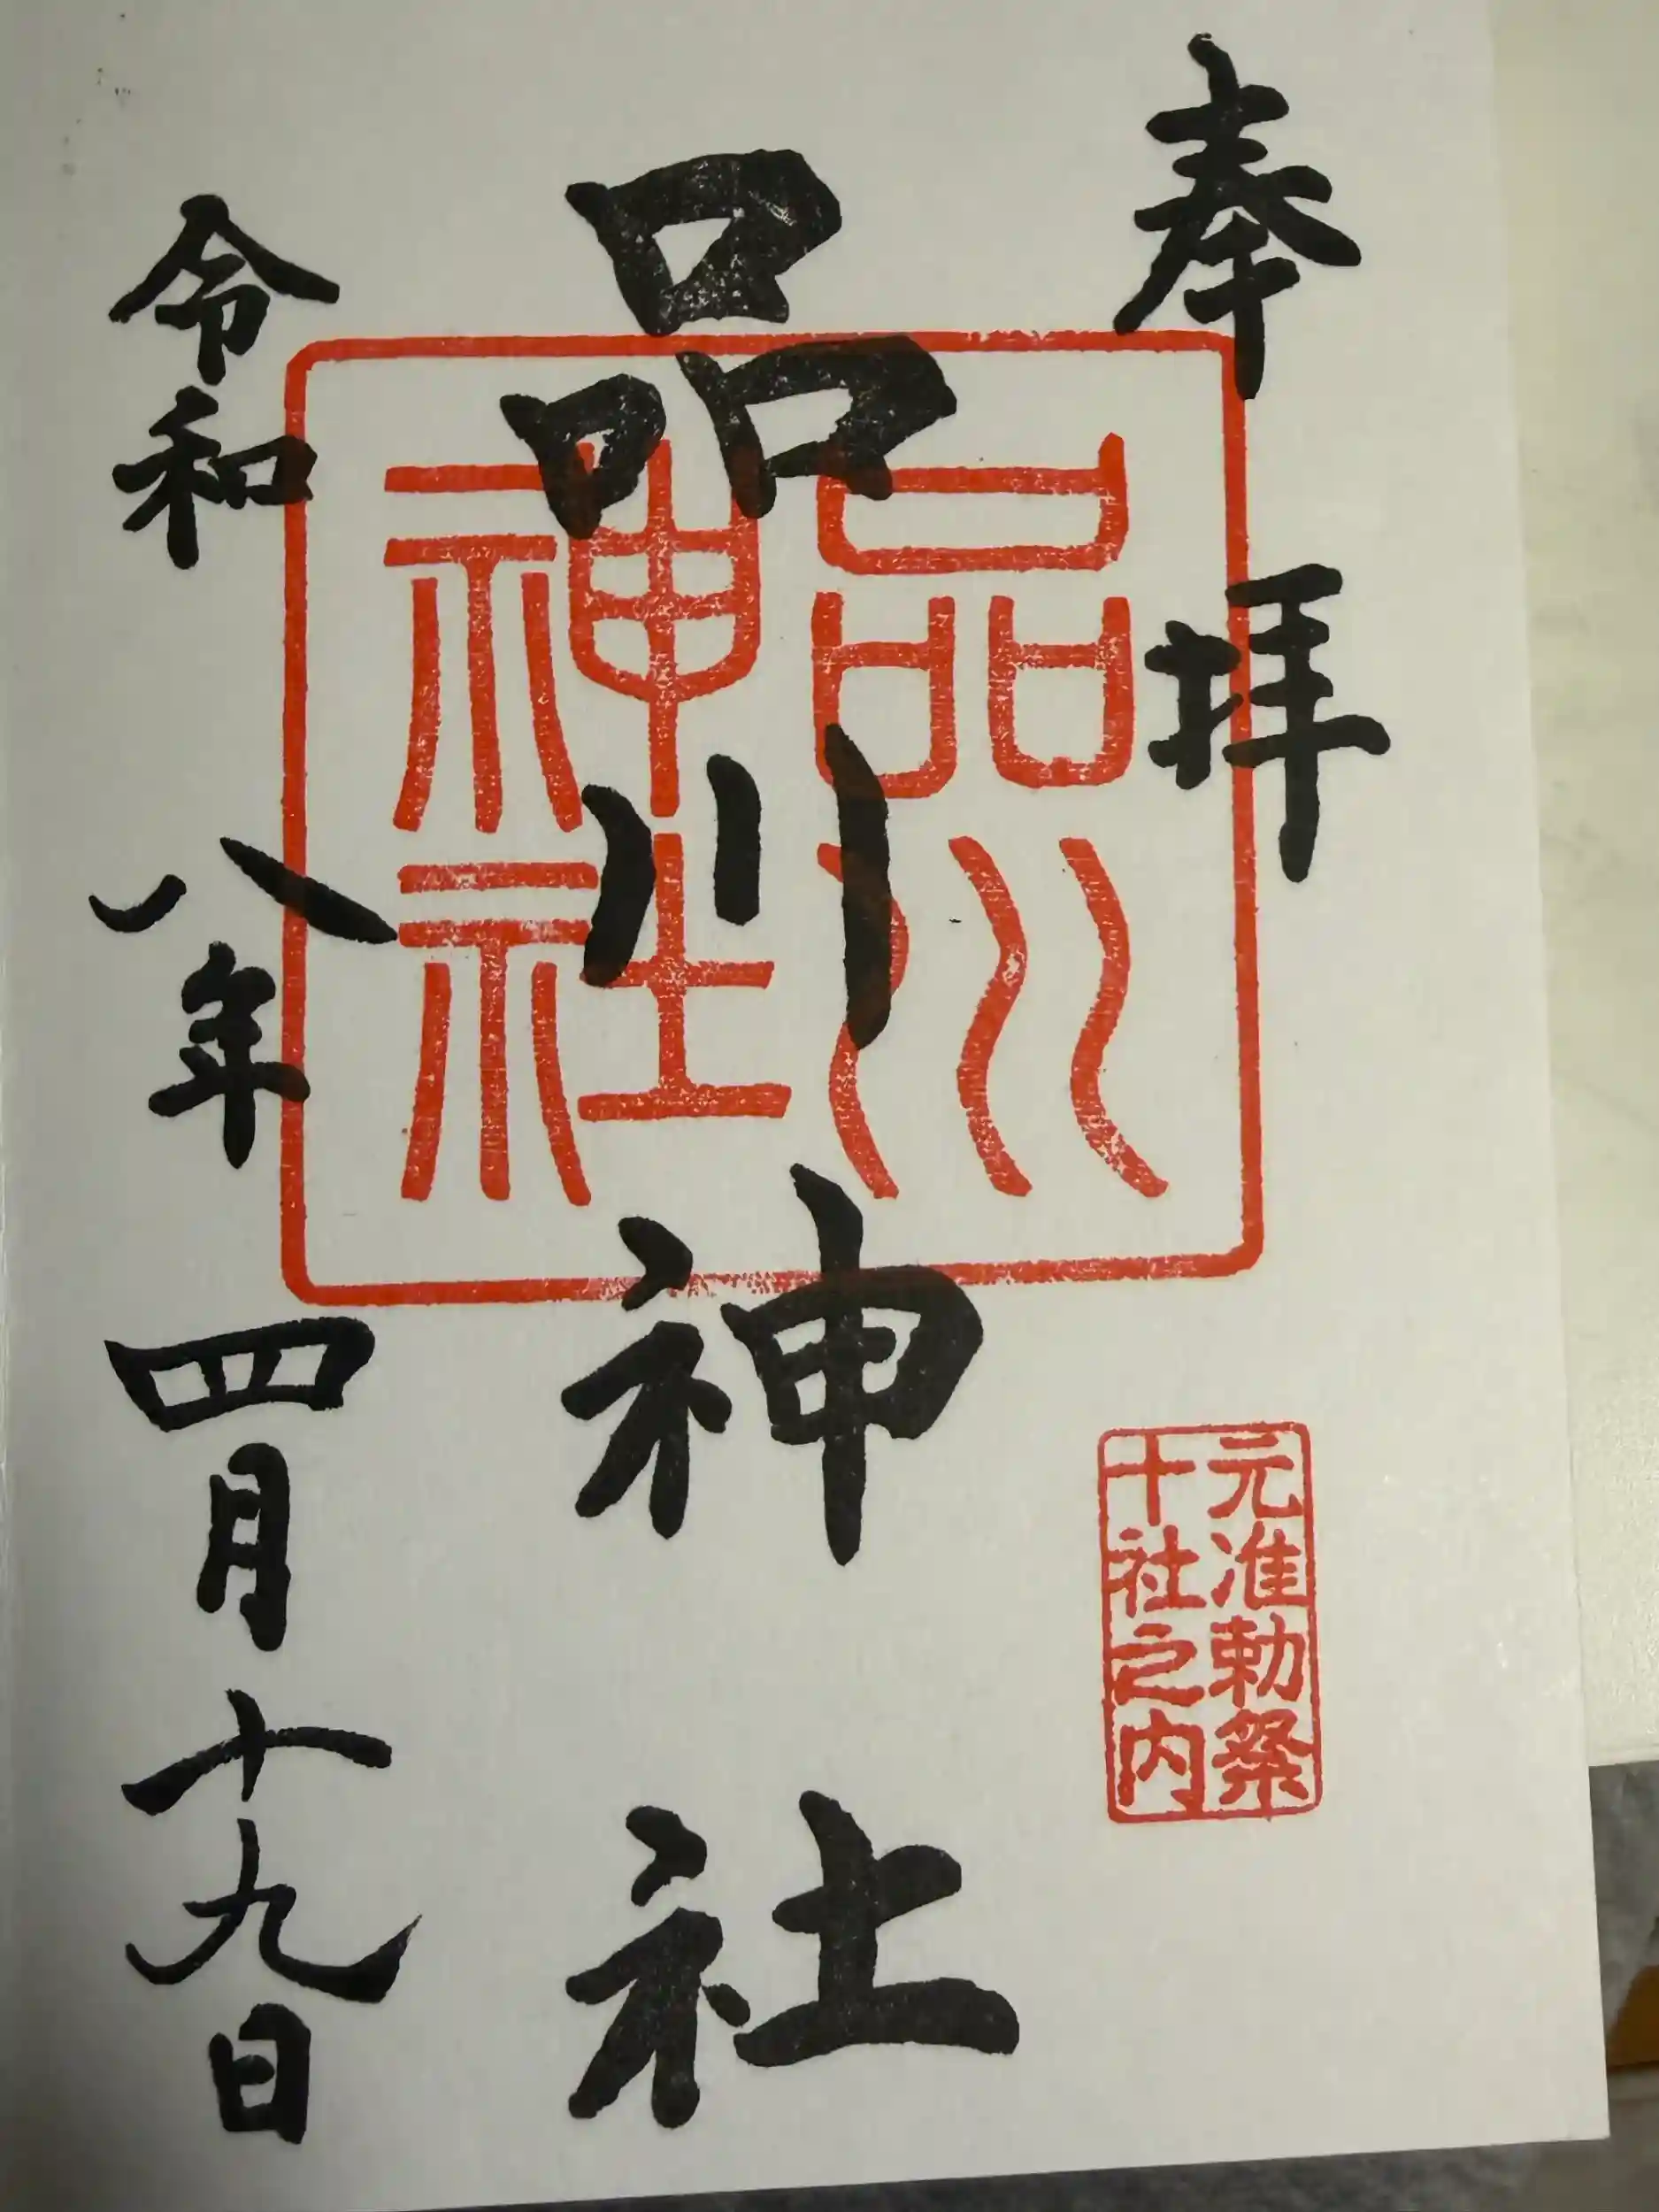 奉拝
元准勅祭
十社之内
品川神社
品川
神社
令和八年四月十九日